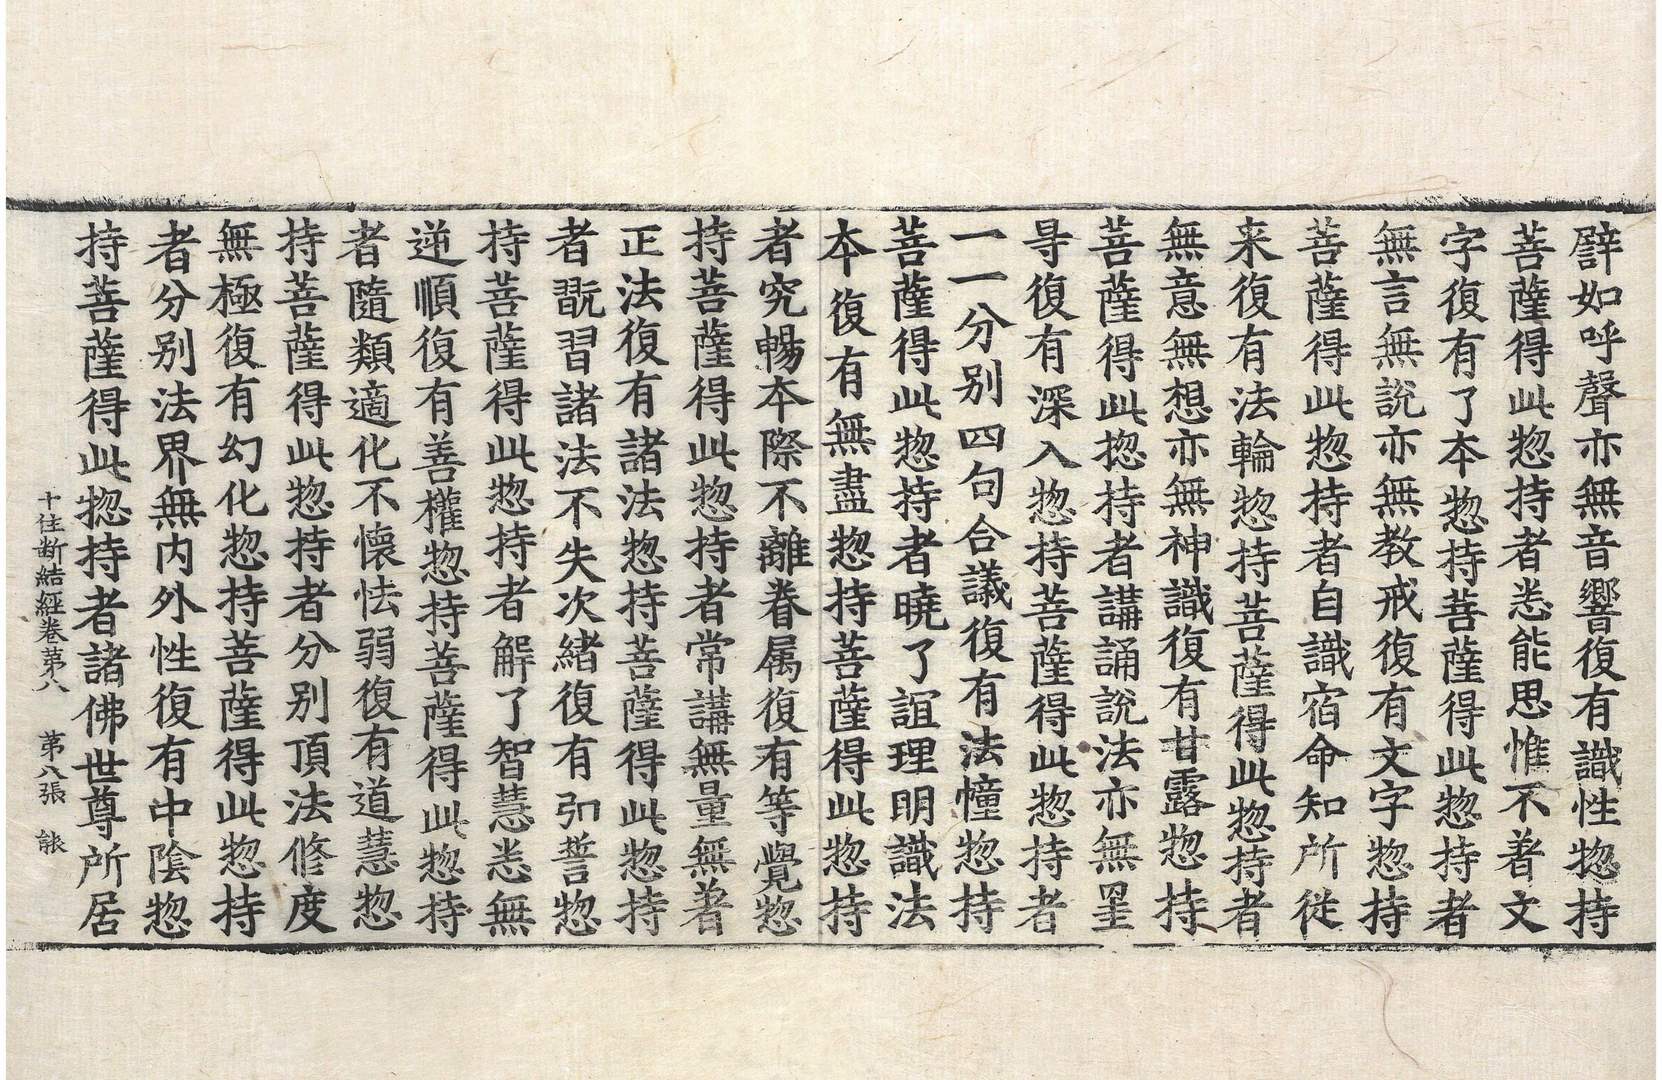 譬如呼聲亦無音響復有識性惣持
菩薩得此惣持者悉能思惟不著文
字復有了本惣持菩薩得此惣持者
無言無說亦無教戒復有文字惣持
菩薩得此惣持者自識宿命知所從
来復有法輪惣持菩薩得此惣持者
無意無想亦無神識復有甘露惣持
菩薩得此惣持者講誦說法亦無罣
㝵復有深入惣持菩薩得此惣持者
一一分別四句合議復有法幢惣持
菩薩得此惣持者曉了誼理明識法
本復有無盡惣持菩薩得此惣持
者究暢本際不離眷属復有等覺惣
持菩薩得此惣持者常講無量無著
正法復有諸法惣持菩薩得此惣持
者翫習諸法不失次緒復有弘誓惣
持菩薩得此惣持者解了智慧悉無
逆順復有善權惣持菩薩得此惣持
者隨類適化不懷怯弱復有道慧惣
持菩薩得此惣持者分別頂法修度
無極復有幻化惣持菩薩得此惣持
者分別法界無內外性復有中陰惣
持菩薩得此惣持者諸佛世尊所居
十住断結經卷苐八 苐八張